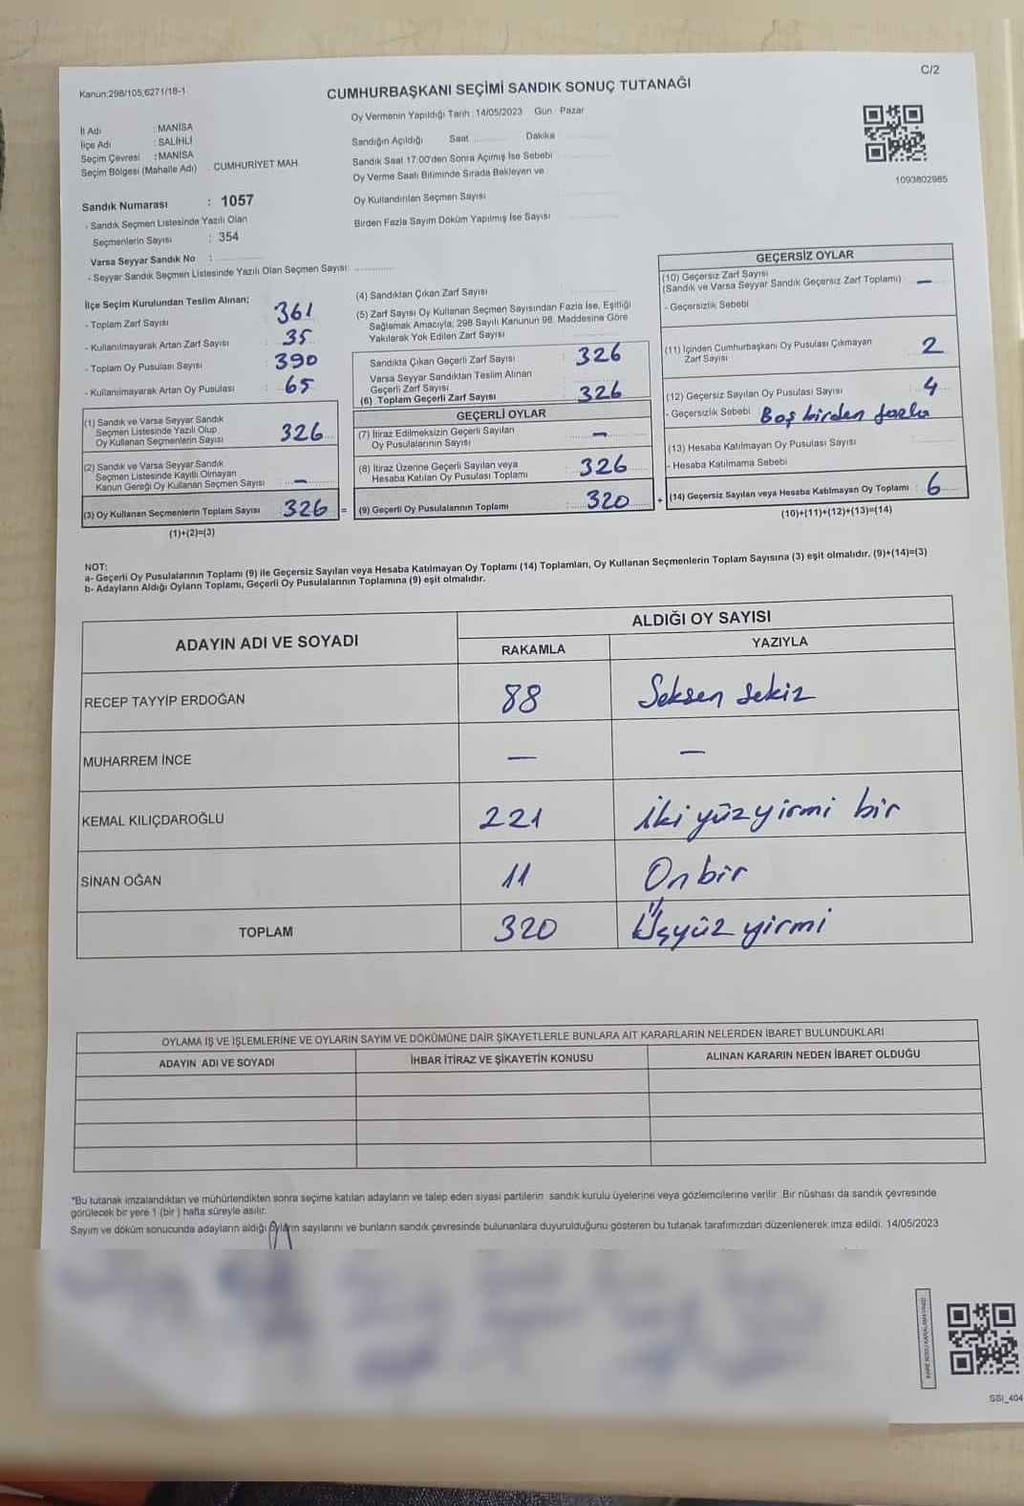 Kanun:298/105,6271/18-1
C/2
CUMHURBAŞKANI SEÇİMİ SANDIK SONUÇ TUTANAĞI
İl Adı : MANİSA
İlçe Adı : SALİHLİ
Seçim Çevresi : MANİSA
Seçim Bölgesi (Mahalle Adı) CUMHURİYET MAH.
Sandık Numarası : 1057
- Sandık Seçmen Listesinde Yazılı Olan
Seçmenlerin Sayısı : 354
Varsa Seyyar Sandık No :
- Seyyar Sandık Seçmen Listesinde Yazılı Olan Seçmen Sayısı:
Oy Vermenin Yapıldığı Tarih : 14/05/2023 Gün : Pazar
Sandığın Açıldığı Saat Dakika
Sandık Saat 17.00'den Sonra Açılmış İse Sebebi
Oy Verme Saati Bitiminde Sırada Bekleyen ve
Oy Kullandırılan Seçmen Sayısı
Birden Fazla Sayım Döküm Yapılmış İse Sayısı
1093802985
İlçe Seçim Kurulundan Teslim Alınan;
- Toplam Zarf Sayısı 361
- Kullanılmayarak Artan Zarf Sayısı 35
- Toplam Oy Pusulası Sayısı 390
- Kullanılmayarak Artan Oy Pusulası 65
(1) Sandık ve Varsa Seyyar Sandık
Seçmen Listesinde Yazılı Olup
Oy Kullanan Seçmenlerin Sayısı 326
(2) Sandık ve Varsa Seyyar Sandık
Seçmen Listesinde Kayıtlı Olmayan
Kanun Gereği Oy Kullanan Seçmen Sayısı : –
(3) Oy Kullanan Seçmenlerin Toplam Sayısı 326 =
(1)+(2)=(3)
(4) Sandıktan Çıkan Zarf Sayısı
(5) Zarf Sayısı Oy Kullanan Seçmen Sayısından Fazla İse, Eşitliği
Sağlamak Amacıyla, 298 Sayılı Kanunun 98. Maddesine Göre
Yakılarak Yok Edilen Zarf Sayısı
Sandıkta Çıkan Geçerli Zarf Sayısı : 326
Varsa Seyyar Sandıktan Teslim Alınan
Geçerli Zarf Sayısı
(6) Toplam Geçerli Zarf Sayısı : 326
GEÇERLİ OYLAR
(7) İtiraz Edilmeksizin Geçerli Sayılan
Oy Pusulalarının Sayısı –
(8) İtiraz Üzerine Geçerli Sayılan veya
Hesaba Katılan Oy Pusulası Toplamı : 326
(9) Geçerli Oy Pusulalarının Toplamı : 320 +
GEÇERSİZ OYLAR
(10) Geçersiz Zarf Sayısı
(Sandık ve Varsa Seyyar Sandık Geçersiz Zarf Toplamı) –
- Geçersizlik Sebebi
(11) İçinden Cumhurbaşkanı Oy Pusulası Çıkmayan
Zarf Sayısı 2
(12) Geçersiz Sayılan Oy Pusulası Sayısı 4
- Geçersizlik Sebebi Boş birden fazla
(13) Hesaba Katılmayan Oy Pusulası Sayısı
- Hesaba Katılmama Sebebi
(14) Geçersiz Sayılan veya Hesaba Katılmayan Oy Toplamı : 6
(10)+(11)+(12)+(13)=(14)
NOT:
a- Geçerli Oy Pusulalarının Toplamı (9) ile Geçersiz Sayılan veya Hesaba Katılmayan Oy Toplamı (14) Toplamları, Oy Kullanan Seçmenlerin Toplam Sayısına (3) eşit olmalıdır. (9)+(14)=(3)
b- Adayların Aldığı Oyların Toplamı, Geçerli Oy Pusulalarının Toplamına (9) eşit olmalıdır.
ADAYIN ADI VE SOYADI
ALDIĞI OY SAYISI
RAKAMLA YAZIYLA
RECEP TAYYİP ERDOĞAN 88 Seksen sekiz
MUHARREM İNCE — –
KEMAL KILIÇDAROĞLU 221 İki yüz yirmi bir
SİNAN OĞAN 11 On bir
TOPLAM 320 Üçyüz yirmi
OYLAMA İŞ VE İŞLEMLERİNE VE OYLARIN SAYIM VE DÖKÜMÜNE DAİR ŞİKAYETLERLE BUNLARA AİT KARARLARIN NELERDEN İBARET BULUNDUKLARI
ADAYIN ADI VE SOYADI İHBAR İTİRAZ VE ŞİKAYETİN KONUSU ALINAN KARARIN NEDEN İBARET OLDUĞU
*Bu tutanak imzalandıktan ve mühürlendikten sonra seçime katılan adayların ve talep eden siyasi partilerin sandık kurulu üyelerine veya gözlemcilerine verilir. Bir nüshası da sandık çevresinde
görülecek bir yere 1 (bir) hafta süreyle asılır.
Sayım ve döküm sonucunda adayların aldığı oyların sayılarını ve bunların sandık çevresinde bulunanlara duyurulduğunu gösteren bu tutanak tarafımızdan düzenlenerek imza edildi. 14/05/2023
SSI_404